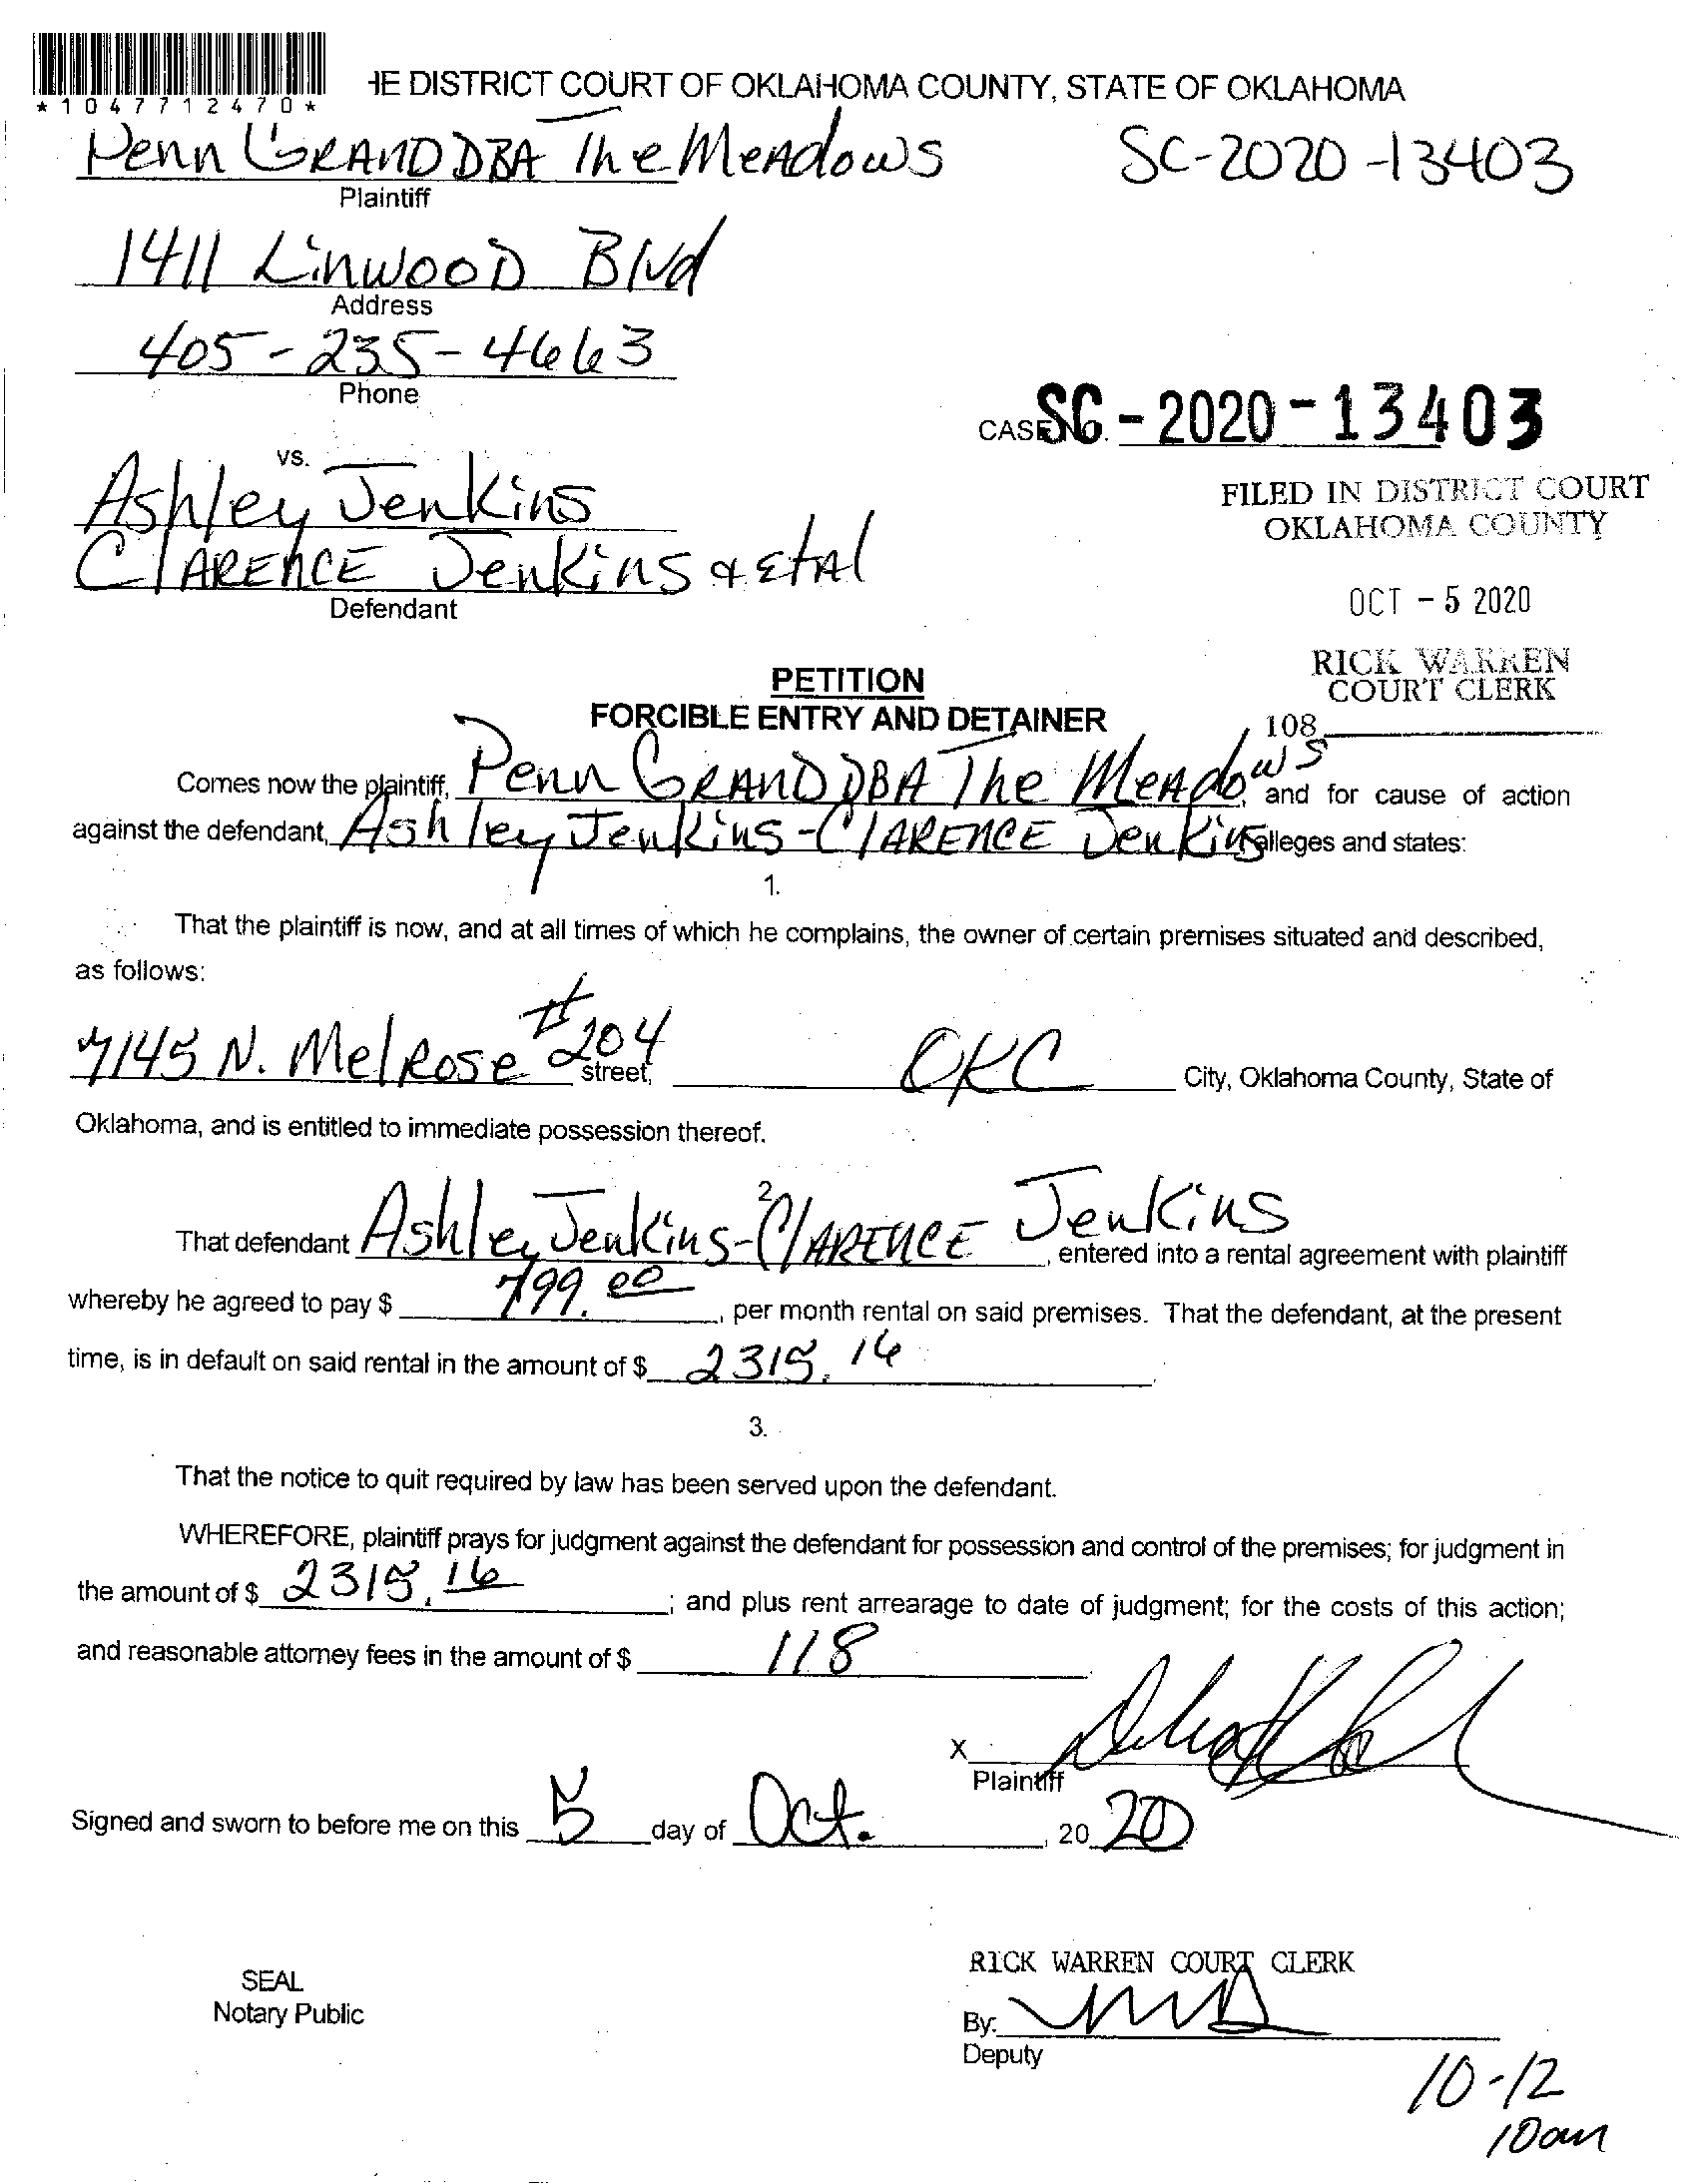 *1047712470*
HE DISTRICT COURT OF OKLAHOMA COUNTY, STATE OF OKLAHOMA
Penn GRAND DBA The MeAdows
SC-2020-13403
Plaintiff
1411 LinwooD Blvd
Address
405-235-4663
Phone
CASE NO. SC-2020-13403
vs.
FILED IN DISTRICT COURT
OKLAHOMA COUNTY
Ashley Jenkins
ClARENCE Jenkins & EtAl
Defendant
OCT - 5 2020
RICK WARREN
COURT CLERK
108
PETITION
FORCIBLE ENTRY AND DETAINER
Comes now the plaintiff, Penn GRAND DBA The MeAdows, and for cause of action
against the defendant, Ashley Jenkins-ClARENCE Jenkins alleges and states:
1.
That the plaintiff is now, and at all times of which he complains, the owner of certain premises situated and described,
as follows:
7145 N. MelRose #204 street, OKC City, Oklahoma County, State of
Oklahoma, and is entitled to immediate possession thereof.
2
That defendant Ashley Jenkins-ClARENCE Jenkins, entered into a rental agreement with plaintiff
whereby he agreed to pay $ 799.00, per month rental on said premises. That the defendant, at the present
time, is in default on said rental in the amount of $ 2315.16.
3.
That the notice to quit required by law has been served upon the defendant.
WHEREFORE, plaintiff prays for judgment against the defendant for possession and control of the premises; for judgment in
the amount of $ 2315.16; and plus rent arrearage to date of judgment; for the costs of this action;
and reasonable attorney fees in the amount of $ 118
X
Plaintiff
Signed and sworn to before me on this 5 day of Oct., 20 20
RICK WARREN COURT CLERK
SEAL
Notary Public
By:
Deputy
10-12
10am